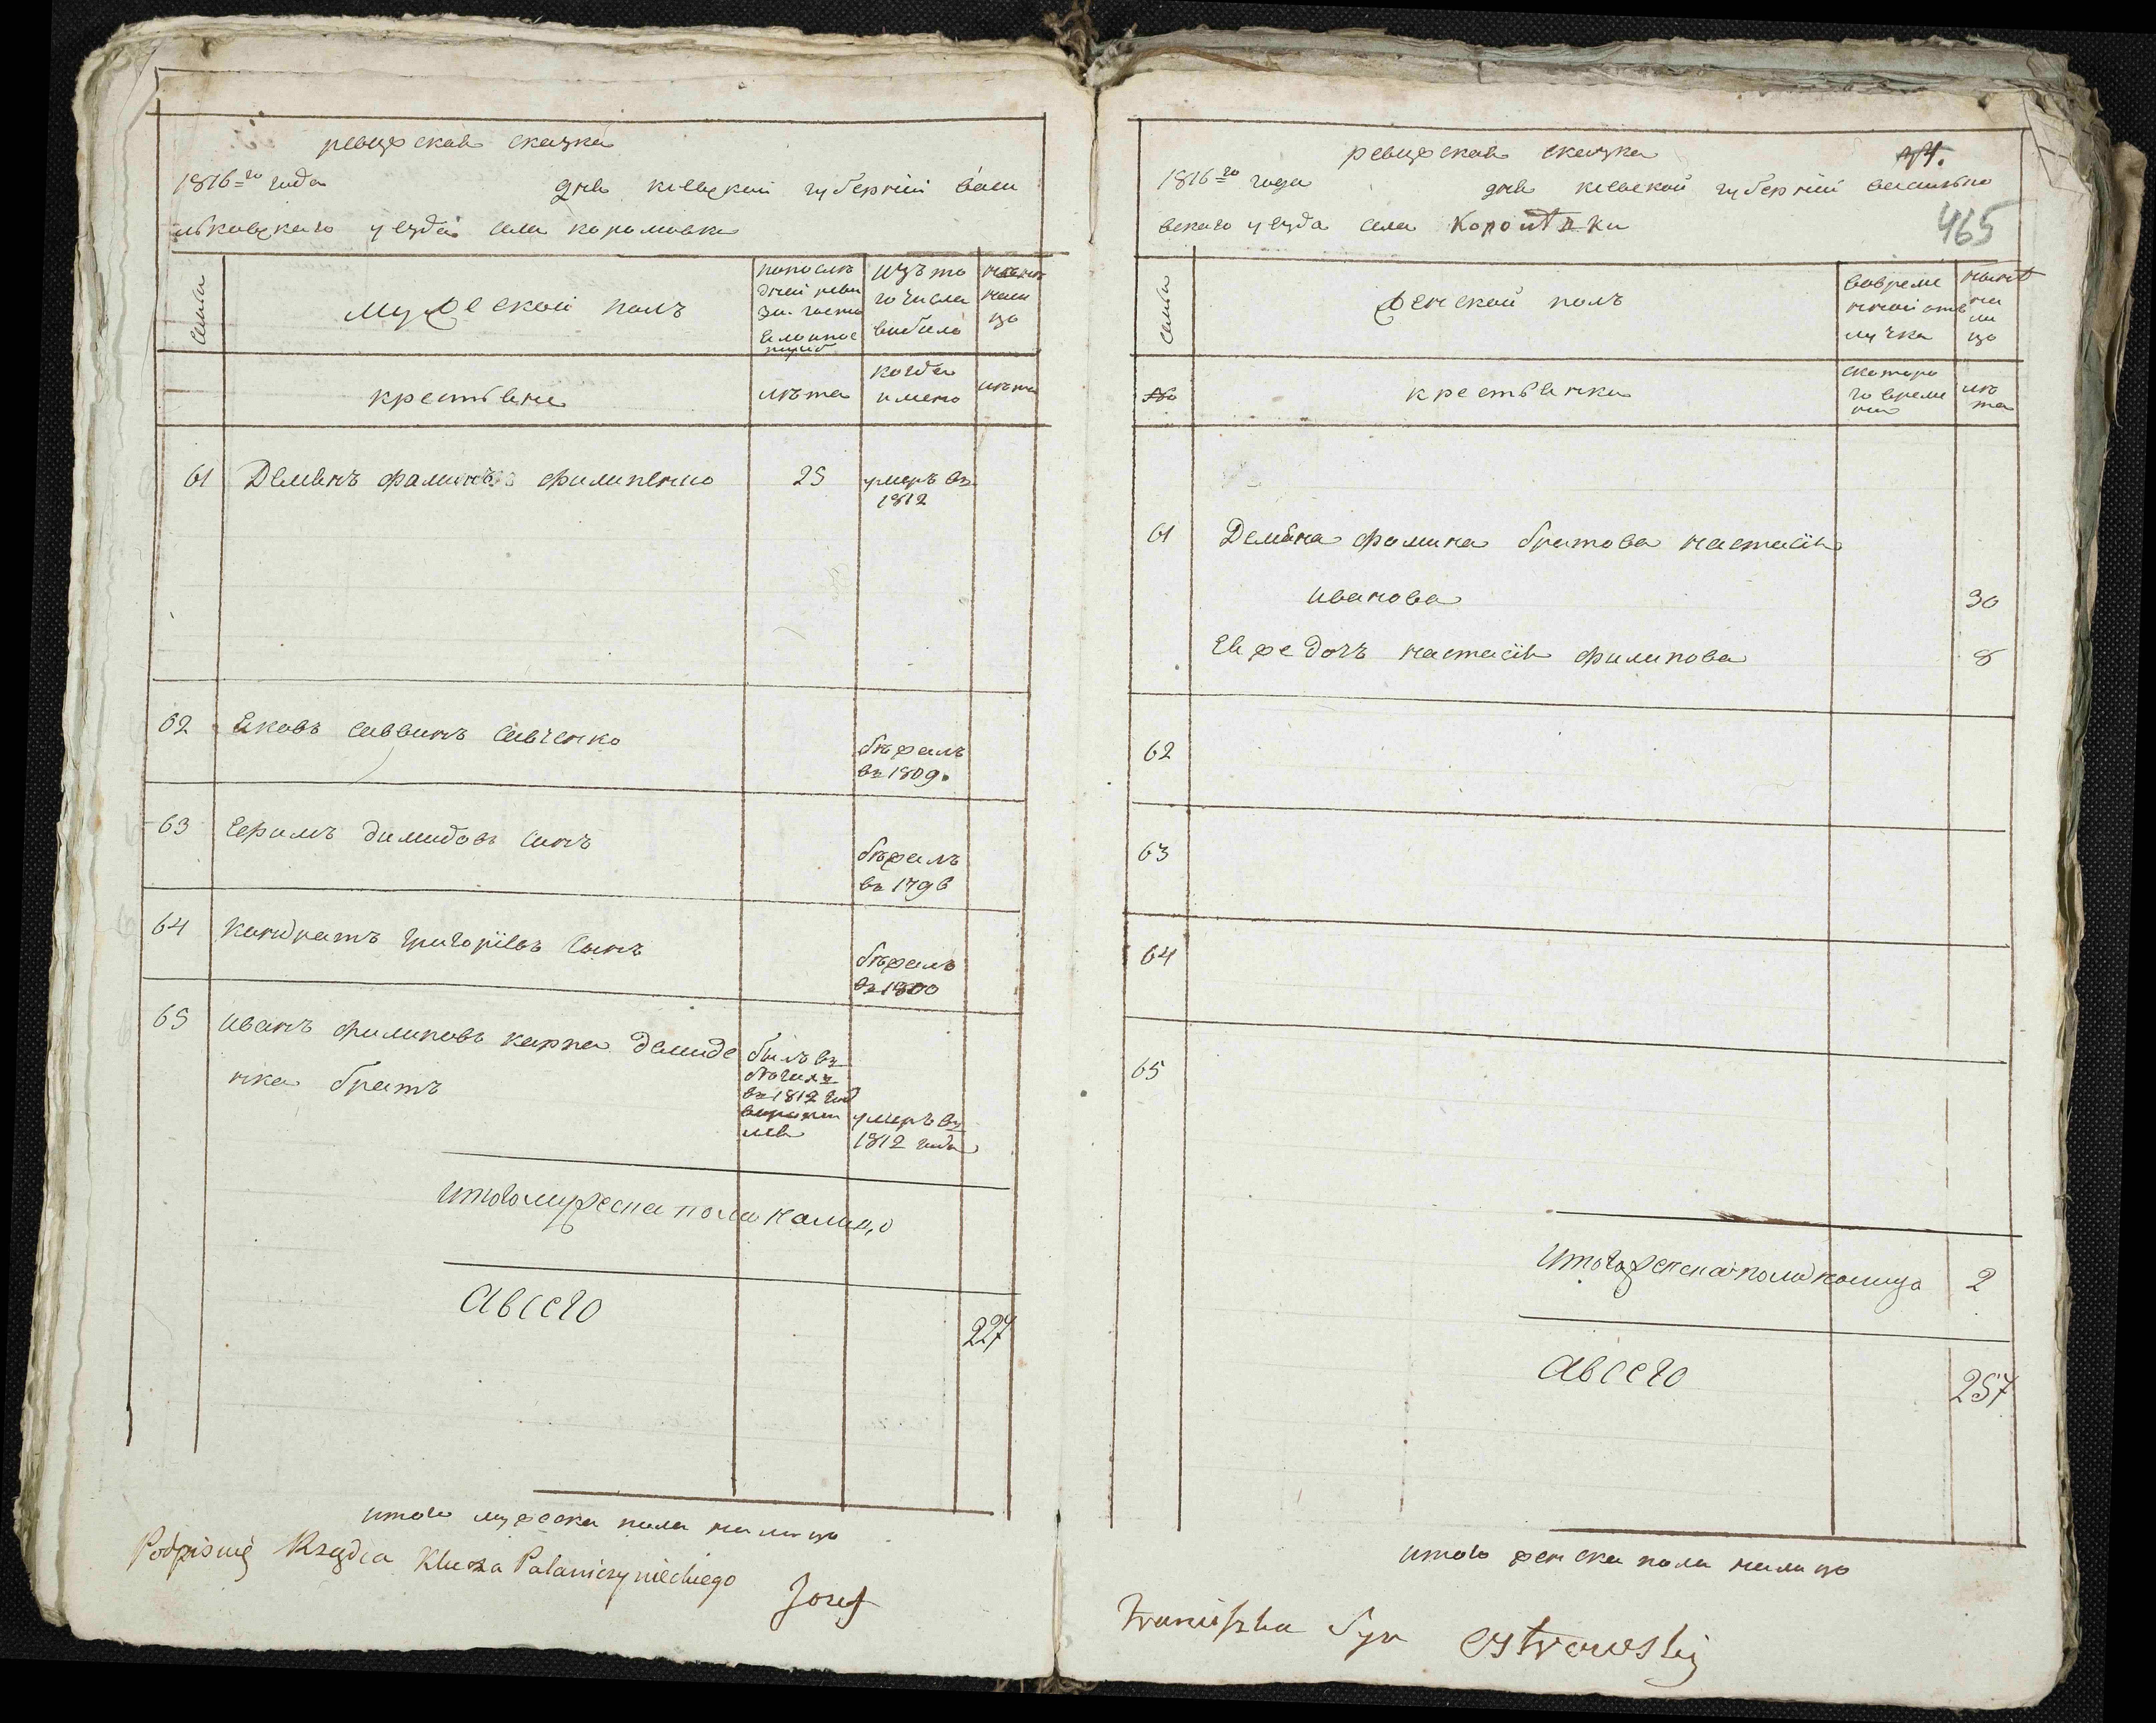 ревизская сказка
1816=го года дня киевской губернїи васи
льковскаго уезда села коромовки
семьи
мужеской полъ
попослѣ
дней реви
зїи состо
изъ то
го числа
выбыло
нынѣ
нали
цо
крестьяне
лѣта
когда
имено
лѣта
61 Демянъ фоминъ филипенко 25 умеръ въ
1812
62 Яковъ саввинъ савченко
бѣжалъ
въ 1809.
63 Ефимъ димидовъ синъ
бѣжалъ
въ 1796
64 Кондратъ григорїевъ сынъ
бѣжалъ
въ 1800
65 иванъ филиповъ карпа демиде
нка братъ
былъ въ
бѣгахъ
въ 1812 год
умеръ въ
1812 года
итого мужеска пола налицо
Авсего
227
итого мужеска пола налицо
Podpisuię Rządca Klucza Józef
ревизская сказка 74.
1816=го года дня киевской губернїй василько
вского уезда села
465
семьи
женской полъ
вовреме
нной отъ
лучка
нынѣ
на
ли
цо
крестьянки
скоторо
го време
ни
лѣ
та
61 Демяна фомина братова настасїя
иванова 30
Ея же дочъ настасїя филипова 8
62
63
64
65
Итого женска пола налицо 2
Авсего
257
итого женска пола налицо
Franciszka Syn Ostrowski